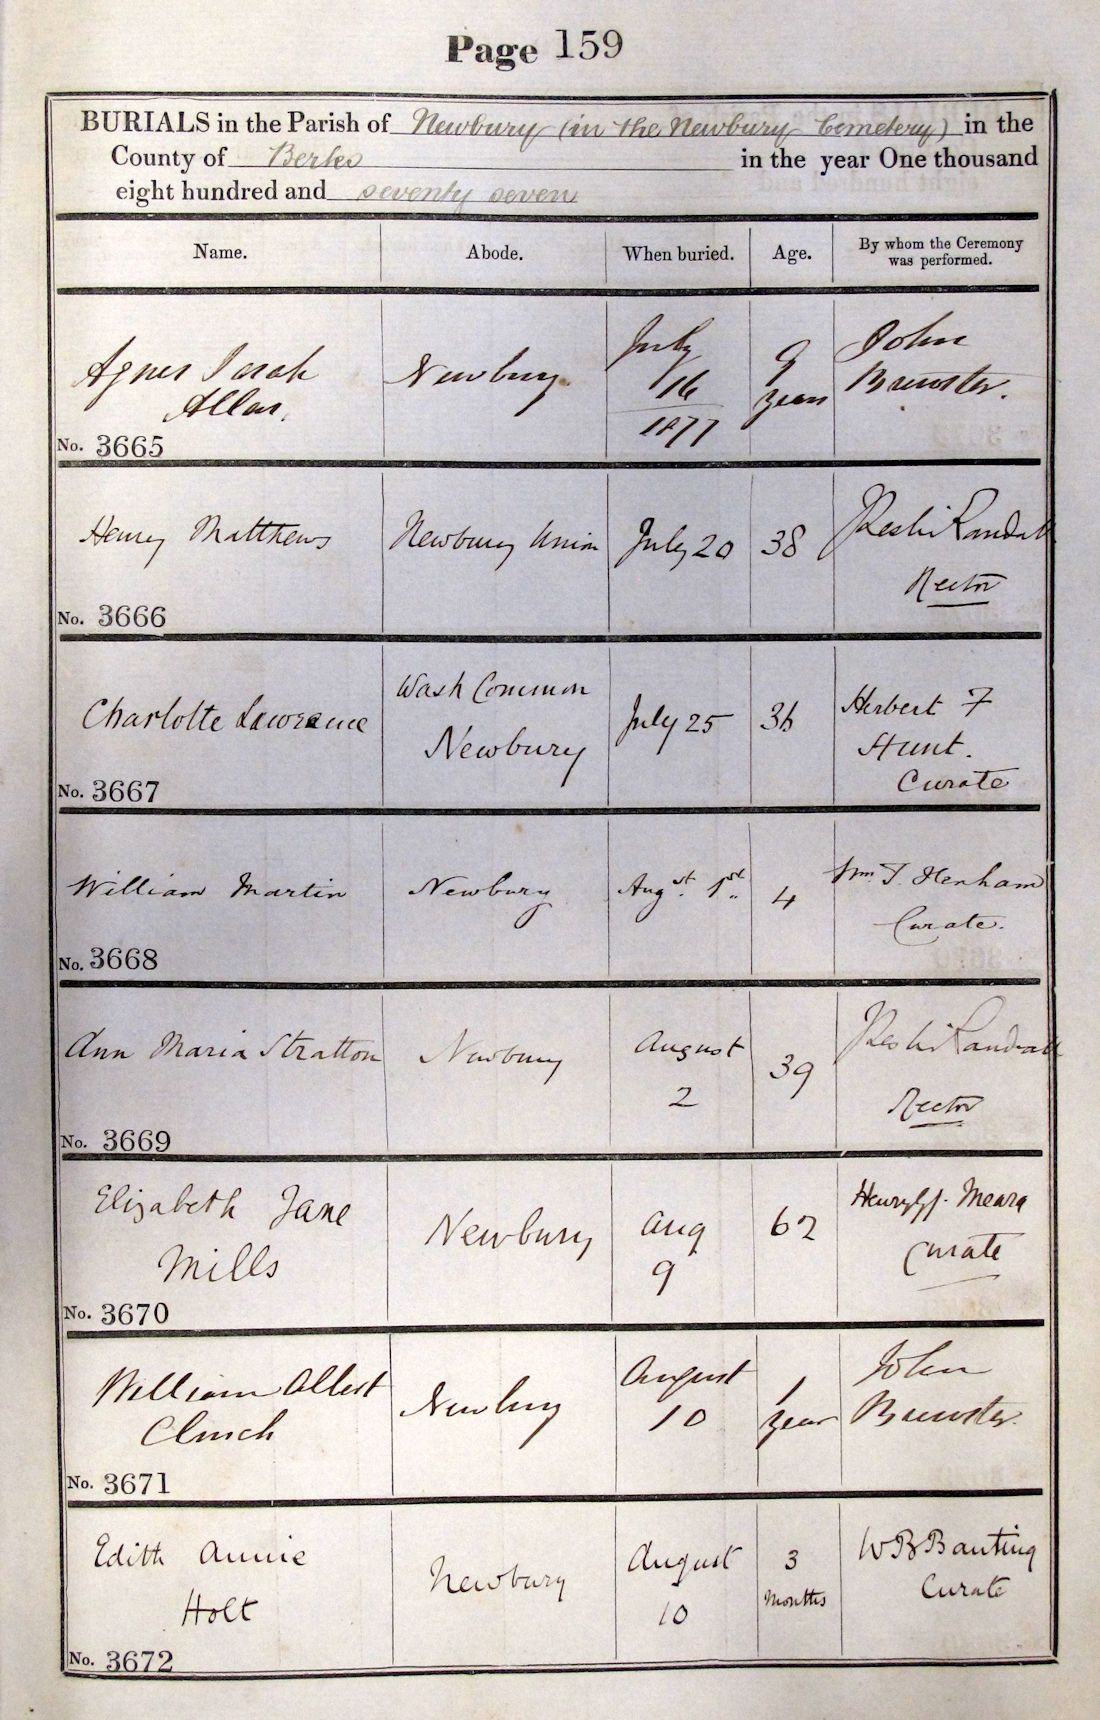 Page 159
BURIALS in the Parish of Newbury (in the Newbury Cemetery) in the
County of Berks in the year One thousand
eight hundred and seventy seven
Name. Abode. When buried. Age. By whom the Ceremony
was performed.
Agnes Sarah
Allen.
Newbury.
July
16
1877
9
years
John
Brewster.
No. 3665
Henry Matthews
Newbury Union
July 20
38
Randall
Rector
No. 3666
Charlotte Lawrence
Wash Common
Newbury
July 25
36
Herbert F
Hunt.
Curate
No. 3667
William Martin
Newbury
Augst. 1st.
4
Wm. T. Henham
Curate.
No. 3668
Ann Maria Stratton
Newbury
August
2
39
Randall
Rector
No. 3669
Elizabeth Jane
Mills
Newbury
Aug
9
62
Henry J. Meara
Curate
No. 3670
William Albert
Clinch
Newbury
August
10
1
year
John
Brewster.
No. 3671
Edith Annie
Holt
Newbury
August
10
3
Months
W B Banting
Curate
No. 3672